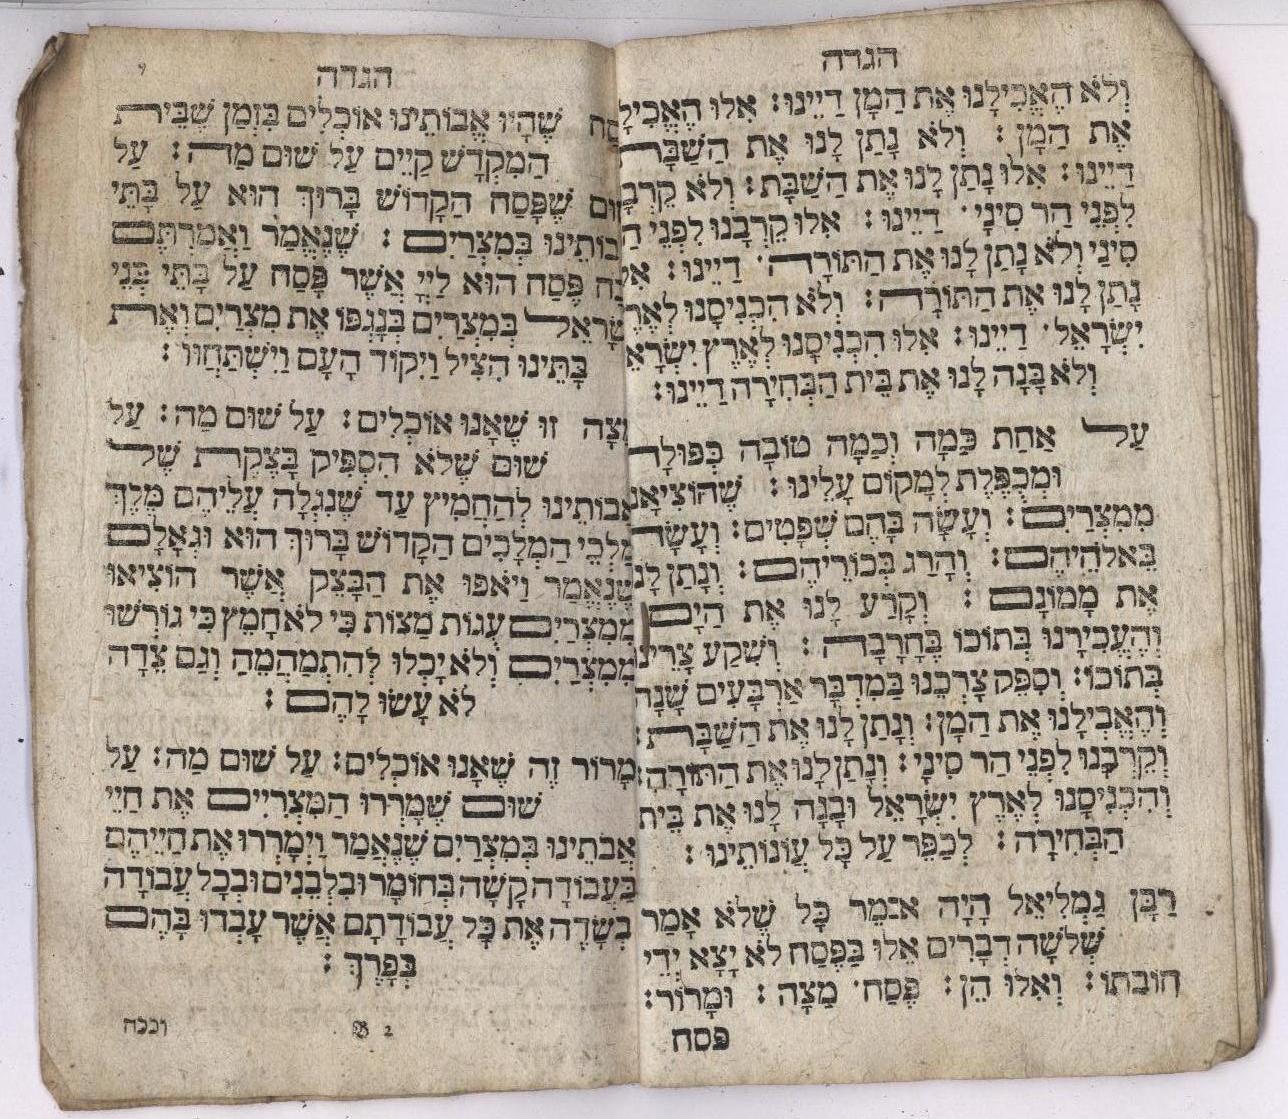 הגדה
וְלֹא הֶאֱכִילָנוּ אֶת הַמָן דַיֵינוּ: אִלוּ הֶאֱכִילָ
אֶת הַמָן: וְלֹא נָתַן לָנוּ אֶת הַשַׁבָּת
דַיֵינוּ: אִלוּ נָתַן לָנוּ אֶת הַשַׁבָּת: וְלֹא קֵרְבָ
לִפְנֵי הַר סִינָי׳ דַיֵינוּ: אִלוּ קֵרְבָנוּ לִפְנֵי הַ
סִינַי וְלֹא נָתַן לָנוּ אֶת הַתּוֹרָה׳ דַיֵינוּ: אִ
נָתַן לָנוּ אֶת הַתּוֹרָה: וְלֹא הִכְנִיסָנוּ לְאֶרֶ
יִשְׂרָאֵל׳ דַיֵינוּ: אִלוּ הִכְנִיסָנוּ לְאֶרֶץ יִשְׂרָאֵ
וְלֹא בָּנָה לָנוּ אֶת בֵּית הַבְּחִירָה דַיֵינוּ:
עַל אַחַת כַּמָה וְכַמָה טוֹבָה כְּפוּלָה
וּמְכֻפֶּלֶת לְמָקוֹם עָלֵינוּ: שֶׁהוֹצִיאָנ
מִמִצְרַיִם: וְעָשָׂה בָּהֶם שְׁפָטִים: וְעָשָׂה
בֵּאלֹהֵיהֶם: וְהָרַג בְּכוֹרֵיהֶם: וְנָתַן לָנ
אֶת מָמוֹנָם: וְקָרַע לָנוּ אֶת הַיָם
וְהֶעֱבִירָנוּ בְּתוֹכוֹ בֶּחָרָבָה: וְשִׁקַע צָרֵינ
בְּתוֹכוֹ: וְסִפֵּק צָרְכֵנוּ בַּמִדְבָּר אַרְבָּעִים שָׁנָה
וְהֶאֱכִילָנוּ אֶת הַמָן: וְנָתַן לָנוּ אֶת הַשַׁבָּת:
וְקֵרְבָנוּ לִפְנֵי הַר סִינָי: וְנָתַן לָנוּ אֶת הַתּוֹרָה:
וְהִכְנִיסָנוּ לְאֶרֶץ יִשְׂרָאֵל וּבָנָה לָנוּ אֶת בֵּית
הַבְּחִירָה: לְכַפֵּר עַל כָּל עֲוֹנוֹתֵינוּ:
רַבָּן גַמְלִיאֵל הָיָה אוֹמֵר כָּל שֶׁלֹא אָמַר
שְׁלֹשָׁה דְבָרִים אֵלוּ בַּפֶּסַח לֹא יָצָא יְדֵי
חוֹבָתוֹ: וְאֵלוּ הֵן: פֶּסַח׳ מַצָה: וּמָרוֹר:
פסח
הגדה י
סַח שֶׁהָיוּ אֲבוֹתֵינוּ אוֹכְלִים בִּזְמַן שֶׁבֵּית
הַמִקְדָשׁ קַיֵים עַל שׁוּם מַה: עַל
שׁוּם שֶׁפָּסַח הַקָדוֹשׁ בָּרוּךְ הוּא עַל בָּתֵּי
בוֹתֵינוּ בְּמִצְרַיִם: שֶׁנֶאֱמַר וַאֲמַרְתֶּם
זֶבַח פֶּסַח הוּא לַיְיָ אֲשֶׁר פָּסַח עַל בָּתֵּי בְּנֵי
שְׂרָאֵל בְּמִצְרַיִם בְּנָגְפּוֹ אֶת מִצְרַיִם וְאֶת
בָּתֵּינוּ הִצִיל וַיִקוֹד הָעָם וַיִשְׁתַּחֲווּ:
מַצָה זוּ שֶׁאָנוּ אוֹכְלִים: עַל שׁוּם מַה: עַל
שׁוּם שֶׁלֹא הִסְפִּיק בָּצֵקֶת שֶׁל
אֲבוֹתֵינוּ לְהַחֲמִיץ עַד שֶׁנִגְלָה עֲלֵיהֶם מֶלֶךְ
מַלְכֵי הַמְלָכִים הַקָדוֹשׁ בָּרוּךְ הוּא וּגְאָלָם
שֶׁנֶאֱמַר וַיֹאפוּ אֶת הַבָּצֵק אֲשֶׁר הוֹצִיאוּ
מִמִצְרַיִם עֻגוֹת מַצוֹת כִּי לֹא חָמֵץ כִּי גוֹרְשׁוּ
מִמִצְרַיִם וְלֹא יָכְלוּ לְהִתְמַהְמֵהַ וְגַם צֵדָה
לֹא עָשׂוּ לָהֶם:
מָרוֹר זֶה שֶׁאָנוּ אוֹכְלִים: עַל שׁוּם מַה: עַל
שׁוּם שֶׁמֵרְרוּ הַמִצְרִיִים אֶת חַיֵי
אֲבֹתֵינוּ בְּמִצְרַיִם שֶׁנֶאֱמַר וַיְמָרְרוּ אֶת חַיֵיהֶם
בַּעֲבוֹדָה קָשָׁה בְּחוֹמֶר וּבִלְבֵנִים וּבְכָל עֲבוֹדָה
בַשָׂדֶה אֶת כָּל עֲבוֹדָתָם אֲשֶׁר עָבְדוּ בָּהֶם
בְּפָרֶךְ:
B 2 וככה